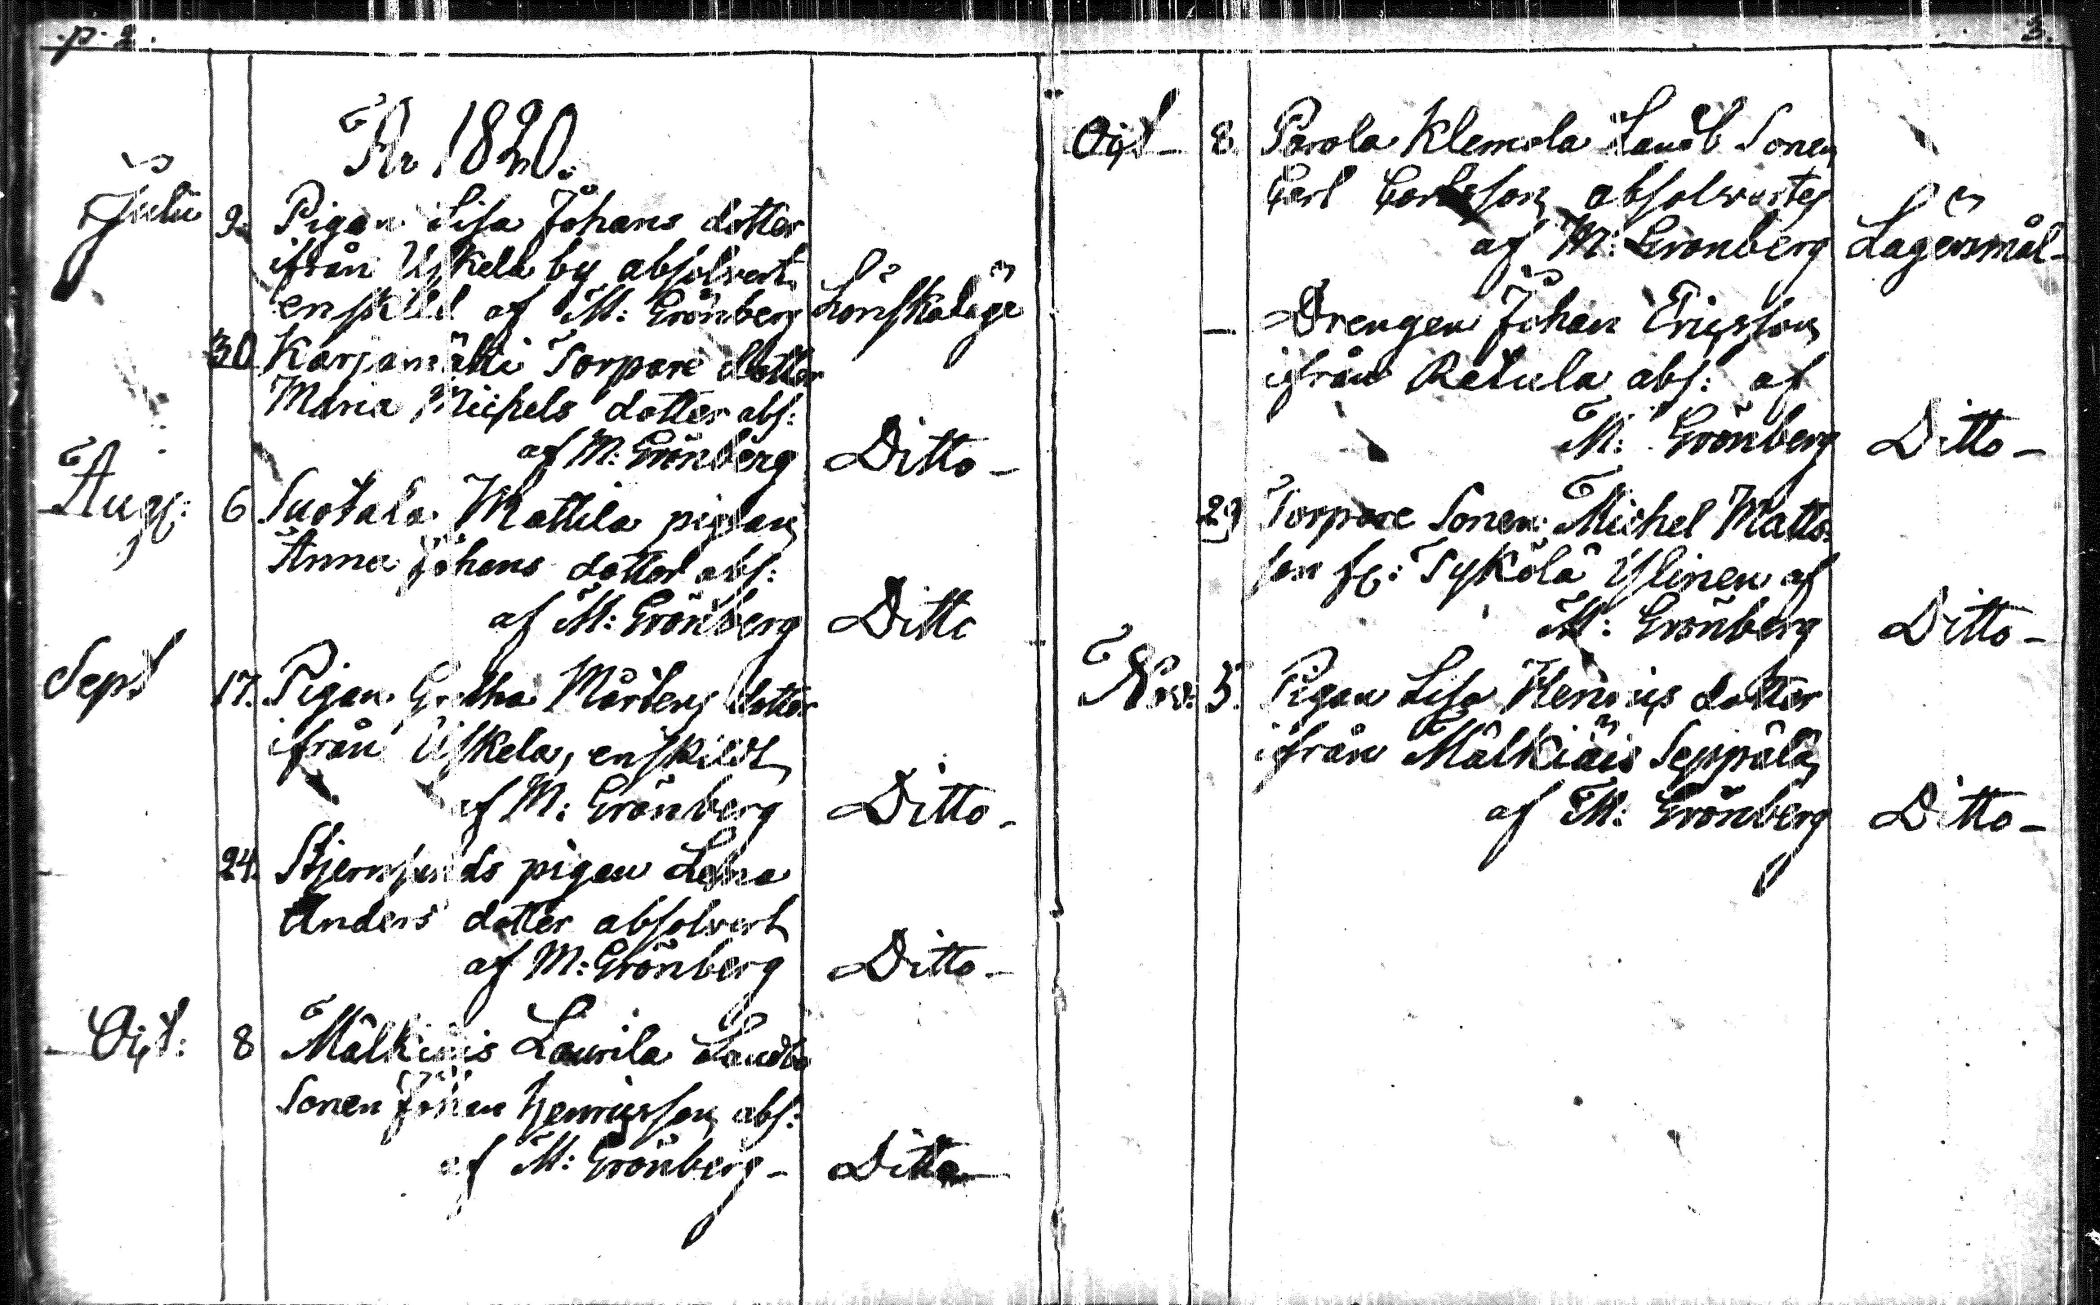 p. 2.
År 1820.
Julii 9. Pigan Lisa Johans dotter
ifrån Uskela by absolvert
enskild af M: Grönberg Lönskaläge
30 Karjamätti Torpare dotter
Maria Michels dotter abs:
af M: Grönberg Ditto -
Aug: 6 Suotala Mattila pigan
Anna Johans dotter abs:
af M: Grönberg Ditto
Sept 17. Pigan Gretha Mårtens dotter
ifrån Uskela, enskildt
af M: Grönberg Ditto -
24. Stjernsunds pigan Lena
Anders dotter absolvert
af M: Grönberg Ditto -
Oct: 8 Mälkiäis Laurila Landbo
Sonen Johan Henricsson abs:
af M: Grönberg - Ditto
3.
Oct - 8 Parola Klemola Landb Sonen
Carl Carlsson absolvertes
af M: Grönberg Lägersmål -
- Drengen Johan Ericsson
ifrån Retula abs: af
M: Grönberg Ditto -
29 Torpare Sonen Michel Matts
son fr: Tykölä Ylinen af
M: Grönberg Ditto -
Nov: 5. Pigan Lisa Henrics dotter
ifrån Mälkiäis Seppälä
af M: Grönberg Ditto -